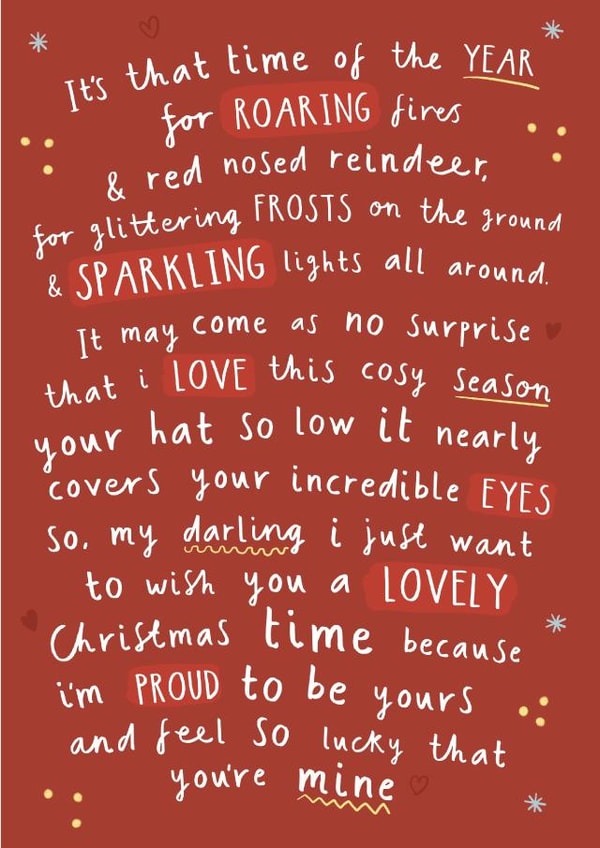 It's that time of the YEAR
for ROARING fires
& red nosed reindeer,
for glittering FROSTS on the ground
& SPARKLING lights all around.
It may come as no surprise
that i LOVE this cosy season
your hat so low it nearly
covers your incredible EYES
So, my darling i just want
to wish you a LOVELY
Christmas time because
i'm PROUD to be yours
and feel so lucky that
you're mine